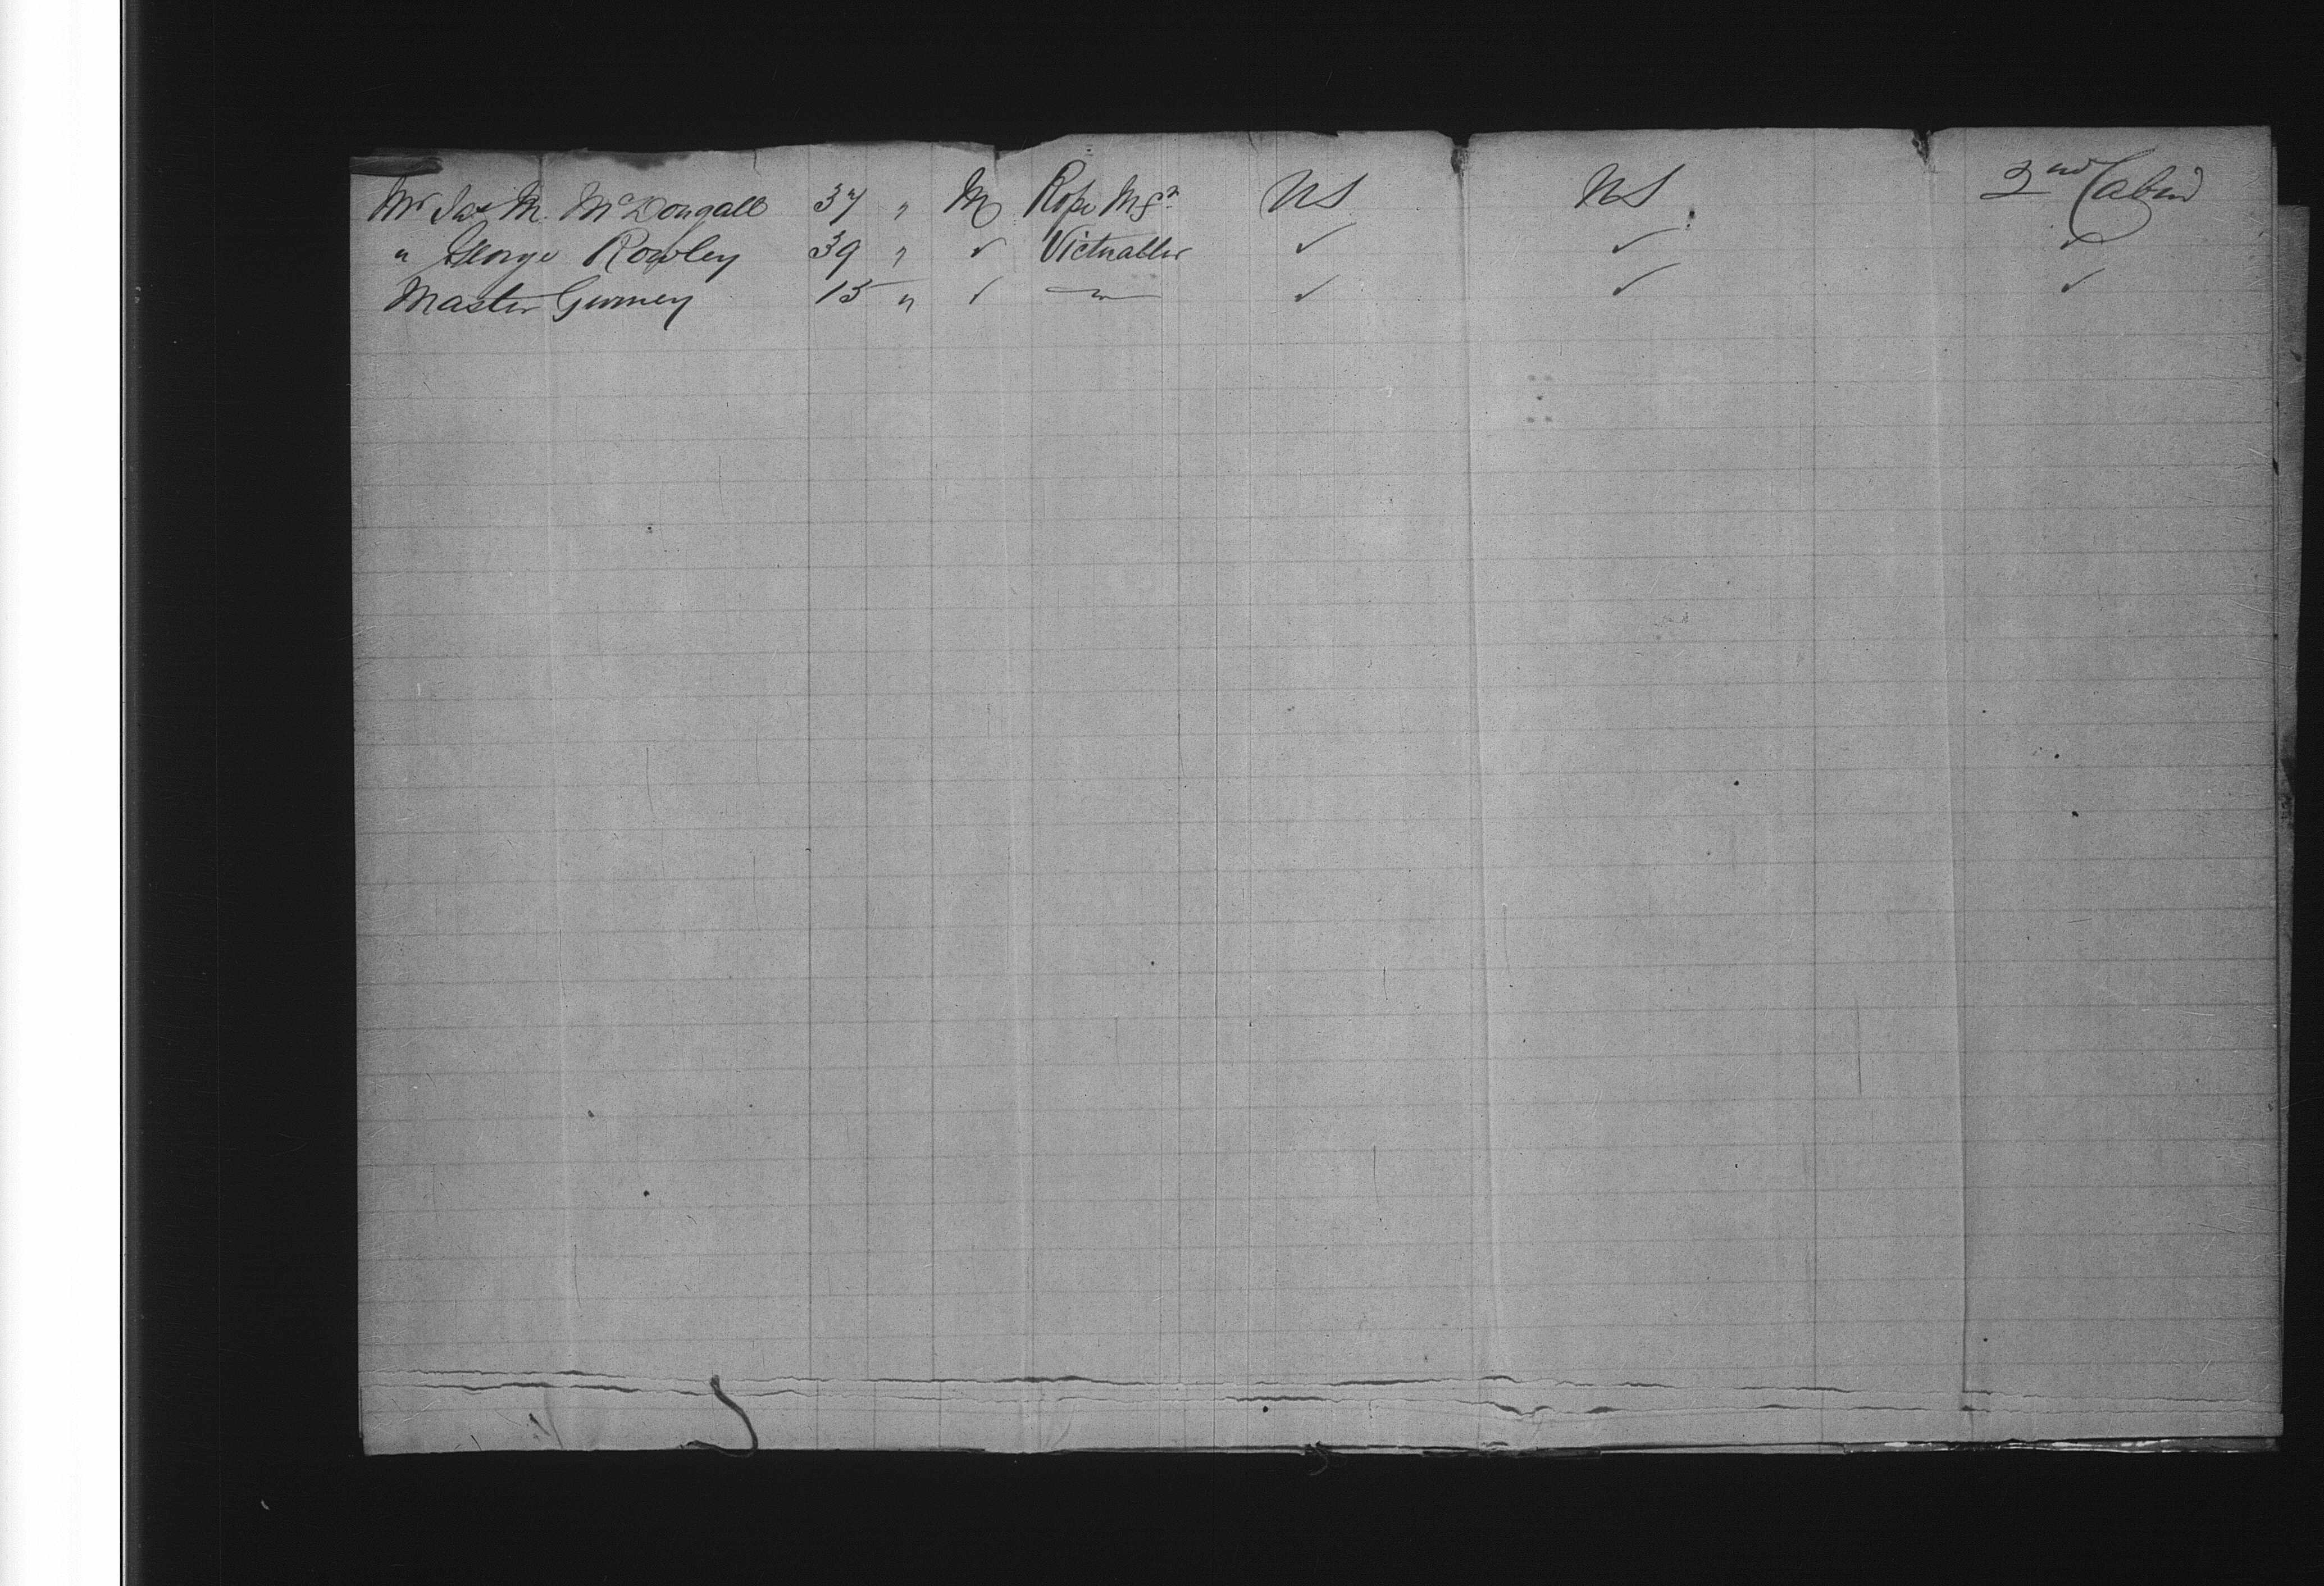 Mr Jas M. McDougall 37 " M Rope Mfr US US 2nd Cabin
" George Rowley 39 " ✓ Victualler ✓ ✓ ✓
Master Gurney 15 " ✓ — ✓ ✓ ✓